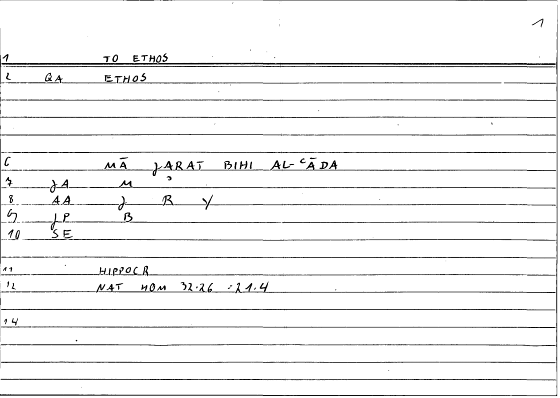 1
1 TO ETHOS
2 QA ETHOS
6 MĀ JARAT BIHI AL-ʿĀDA
7 JA M ʾ
8 AA J R Y
9 JP B
10 SE
11 HIPPOCR
12 NAT HOM 32.26 :21.4
14